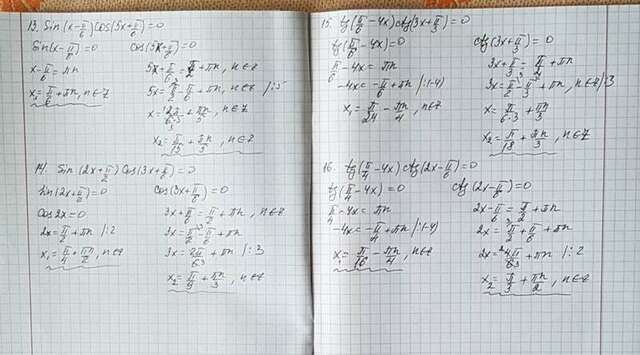 13. Sin(x-π/6)cos(5x+π/6)=0
Sin(x-π/6)=0
x-π/6=πn
x₁=π/6+πn, n∈Z
cos(5x+π/6)=0
5x+π/6=π/2+πn, n∈Z
5x=π/2-π/6+πn, n∈Z /:5
x₂=π/15+πn/5, n∈Z
14. Sin(2x+π/2)Cos(3x+π/6)=0
Sin(2x+π/2)=0
Cos2x=0
2x=π/2+πn /:2
x₁=π/4+πn/2, n∈Z
Cos(3x+π/6)=0
3x+π/6=π/2+πn, n∈Z
3x=π/2-π/6+πn
3x=2π/6+πn /:3
x₂=π/9+πn/3, n∈Z
15. tg(π/6-4x)ctg(3x+π/3)=0
tg(π/6-4x)=0
π/6-4x=πn
-4x=-π/6+πn /:(-4)
x₁=π/24-πn/4, n∈Z
ctg(3x+π/3)=0
3x+π/3=π/2+πn
3x=π/2-π/3+πn, n∈Z /:3
x=π/6·3+πn/3
x₂=π/18+πn/3, n∈Z
16. tg(π/4-4x)ctg(2x-π/6)=0
tg(π/4-4x)=0
π/4-4x=πn
-4x=-π/4+πn /:(-4)
x₁=π/16-πn/4, n∈Z
ctg(2x-π/6)=0
2x-π/6=π/2+πn
2x=π/2+π/6+πn
2x=4π/6+πn /:2
x₂=π/3+πn/2, n∈Z